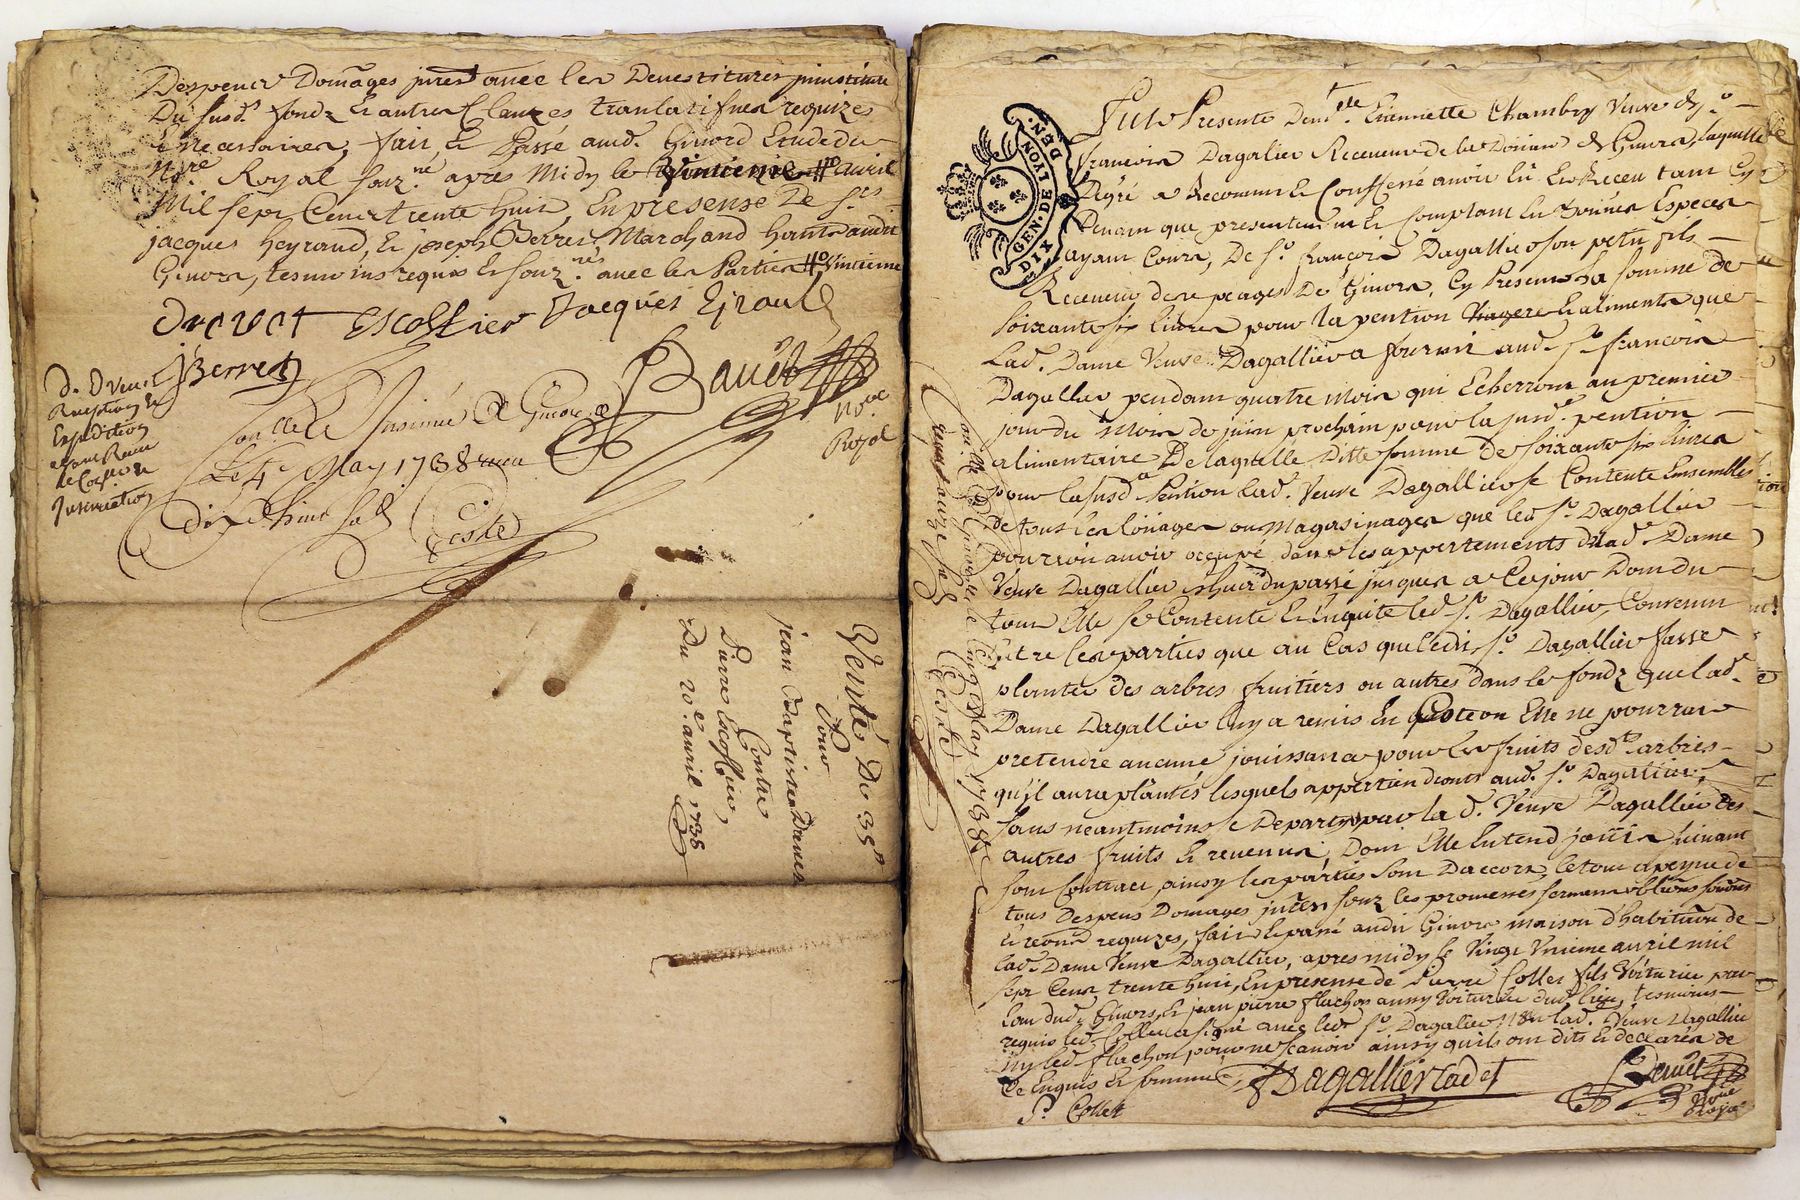 Despence Domages jnrest avec les Devestitures jnvestiture
Du susd. fondz Et autres Clauzes translatifues requizes
Et necessaires, fait, et Passé aud. Givord Etude du
No.re Royal souz.né apres Midy le Vintieme Avril
Mil sept Cent trente huit, En presense De S.rs
jacques heyraud, Et joseph Berret Marchand hants audit
Givors, tesmoins requis Et souz.nes avec les Parties Vintieme
Drevet Escoffier Jacques Eyraud
JBerret
Bauët
No.re
Royal
Reception Et
Expedition
Insinuation
Le 4e May 1738
dix huit sols
Coste
Vente De 35ll
Pour
jean Baptiste Danes
Contre
Pierre Escoffier,
Du 20.e avril 1738
DIX DEN.
GEN. DE LION
Fut Presente Dem.lle Etiennette Chambry Veuve de S.r
francois Dagalier Receveur de la Doüane de Givors, Laquelle de
Degré a Reconnu Et Confessé avoir Eü Et Receu tant Cy
Devant que presentement Et Comptant En bonnes Especes
ayant Cours, De S.r françois Dagallier son petit fils
Receveur des peages De Givors, Cy Present La somme de
soixante six livres pour la pention Viagere Et aliments que
Lad. Dame Veuve Dagallier a fourni aud. S.r francois
Dagallier pendant quatre Mois qui Echerront au premier
jour du Mois de juin prochain pour la susd.e pention
alimentaire De laquelle Ditte somme de soixante six livres
Pour la susd.e Pention Lad. Veuve Dagallier se Contente Ensembles
de tous les löüages ou Magasinages que led. S.r Dagallier
pourroit avoir occupé dans les appertements de lad. Dame
Veuve Dagallier jusques a Ce jour Dont du
tout Elle se Contente Et En quite led. S.r Dagallier, Convenu
Entre les parties que au Cas que ledit S.r Dagallier fasse
planter des arbres fruitiers ou autres dans le fondz que lad.e
Dame Dagallier luy a remis En Elle ne pourra
pretendre aucune jouissance pour les fruits desd.ts arbres
qu'il aura plantés lesquels appertiendront aud. S.r Dagallier,
sans neantmoins se Departir par la d. Veuve Dagallier des
autres fruits Et revenus, Dont Elle Entend joüir suivant
son Contract, ainsy les parties sont Daccors, le tout a peyne de
tous Despens Domages jnrest souz les promesses serment oblions soumons
Et renon requizes, fait Et passé audit Givors maison d'habitation de
lad. Dame Veuve Dagallier, apres midy le Vingt Vnieme avril mil
sept Cent trente huit, En presense de Pierre Collet fils Voiturier par
Eau dud. Givors, Et jean pierre flachon aussy Voiturier dud. lieu, tesmoins
requis led. Collet a signé avec led. S.r Dagallier Non lad. Veuve Dagallier
ny led. flachon pour ne scavoir ainsy quils ont dits Et declarés de
Ce Enquis Et sommés,
Dagallier Cadet
P. Collet
Bauët
No.re
Royal